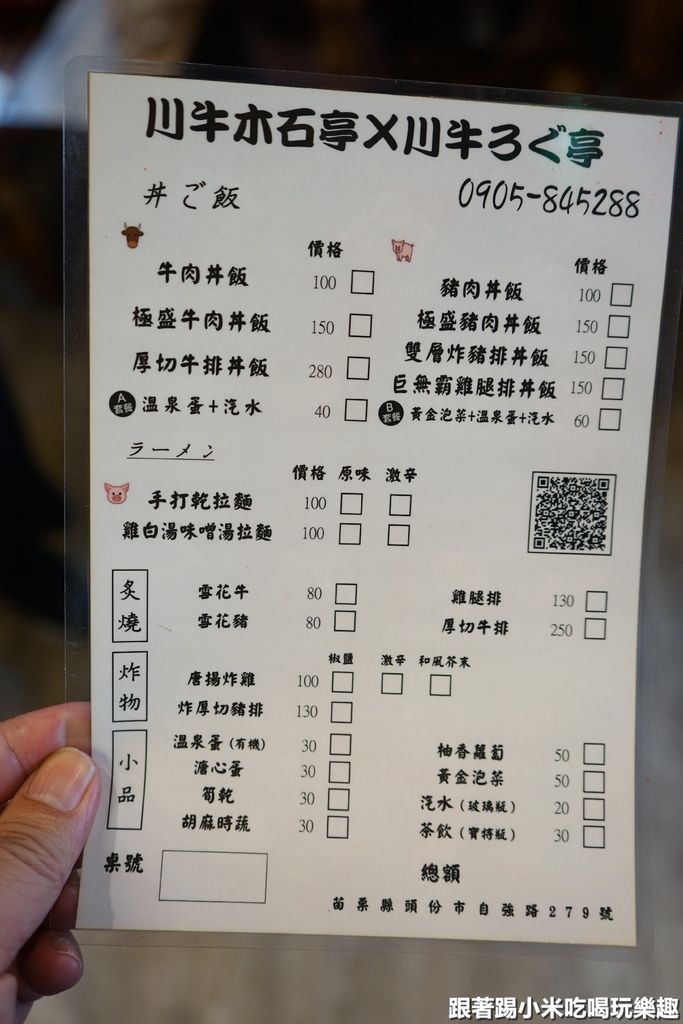 川牛木石亭X川牛ろぐ亭
丼ご飯 0905-845288
價格 價格
牛肉丼飯 100 豬肉丼飯 100
極盛牛肉丼飯 150 極盛豬肉丼飯 150
厚切牛排丼飯 280 雙層炸豬排丼飯 150
巨無霸雞腿排丼飯 150
A套餐 溫泉蛋+汽水 40 B套餐 黃金泡菜+溫泉蛋+汽水 60
ラーメン
價格 原味 激辛
手打乾拉麵 100
雞白湯味噌湯拉麵 100
炙燒
雪花牛 80 雞腿排 130
雪花豬 80 厚切牛排 250
炸物
椒鹽 激辛 和風芥末
唐揚炸雞 100
炸厚切豬排 130
小品
溫泉蛋(有機) 30 柚香蘿蔔 50
溏心蛋 30 黃金泡菜 50
筍乾 30 汽水(玻璃瓶) 20
胡麻時蔬 30 茶飲(寶特瓶) 30
桌號 總額
苗栗縣頭份市自強路279號
跟著踢小米吃喝玩樂趣